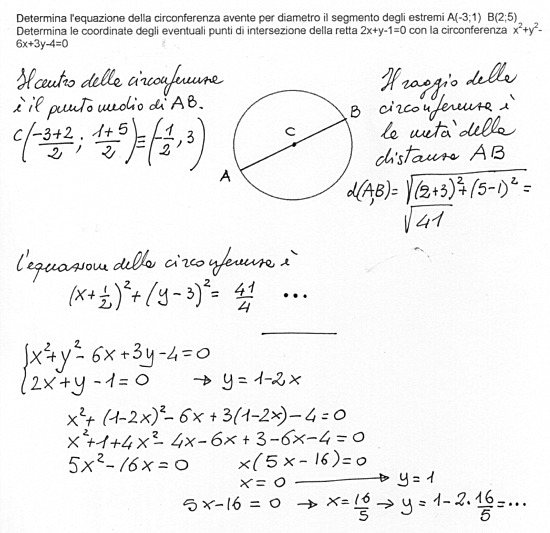 Determina l'equazione della circonferenza avente per diametro il segmento degli estremi A(-3;1) B(2;5)
Determina le coordinate degli eventuali punti di intersezione della retta 2x+y-1=0 con la circonferenza x²+y²-
6x+3y-4=0
Il centro della circonferenza
è il punto medio di AB.
C(-3+2/2 ; 1+5/2) ≡ (-1/2, 3)
A
C
B
Il raggio della
circonferenza è
la metà della
distanza AB
d(A,B) = √(2+3)²+(5-1)² =
√41
L'equazione della circonferenza è
(x+1/2)²+(y-3)² = 41/4 ...
{x²+y²-6x+3y-4=0
{2x+y-1=0 → y=1-2x
x²+(1-2x)²-6x+3(1-2x)-4=0
x²+1+4x²-4x-6x+3-6x-4=0
5x²-16x=0 x(5x-16)=0
x=0 → y=1
5x-16=0 → x=16/5 → y=1-2·16/5=...